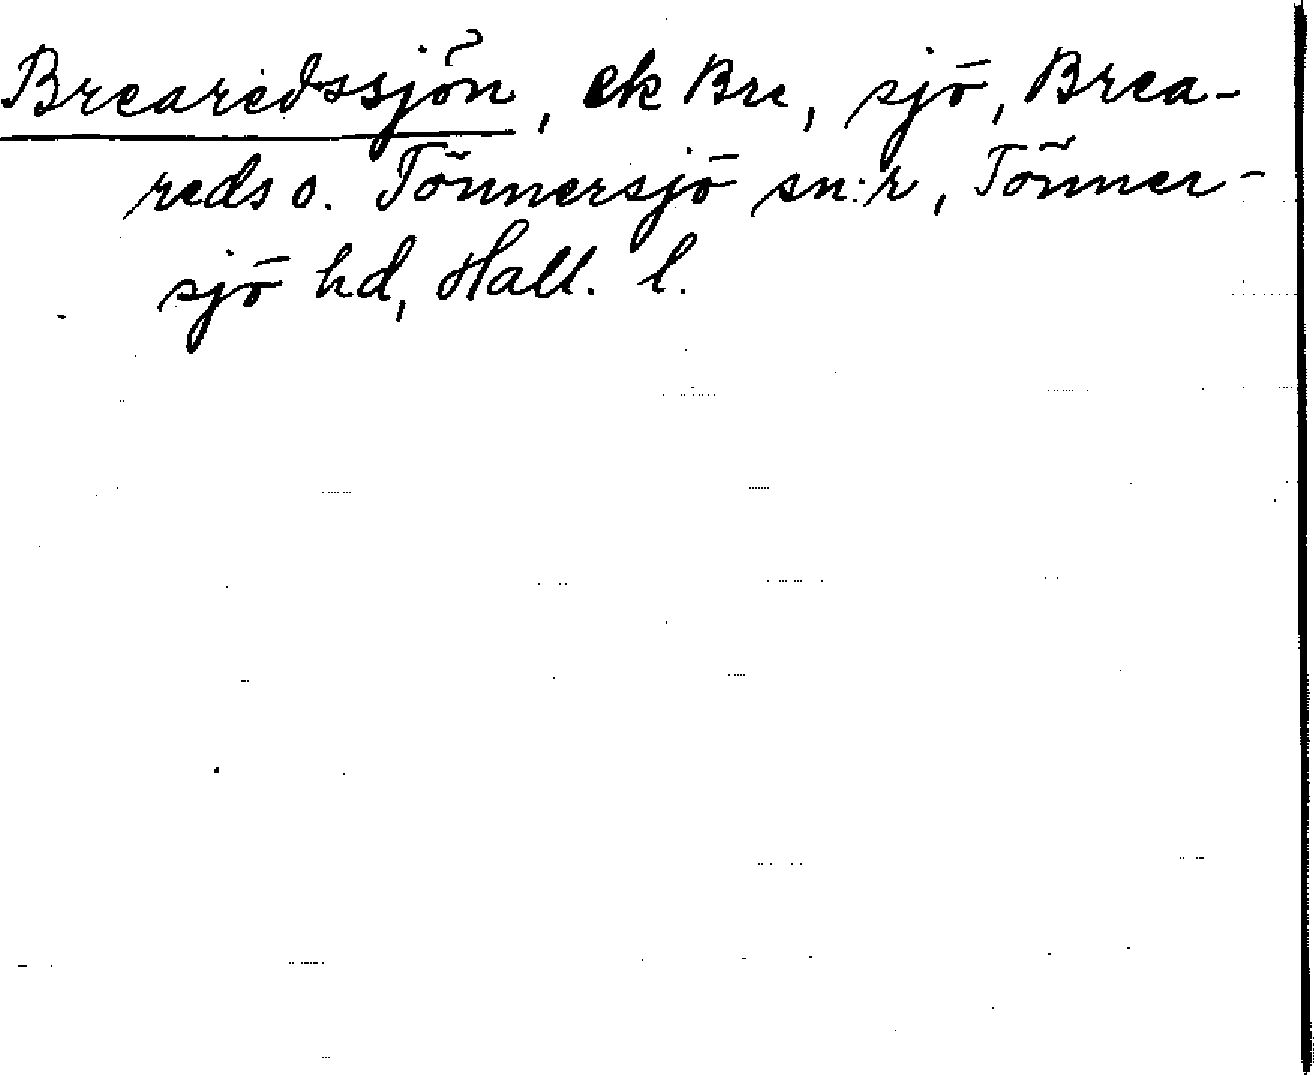 Brearedssjön, ek Bre, sjö, Brea-
reds o. Tönnersjö sn:r, Tönner-
sjö hd, Hall. l.